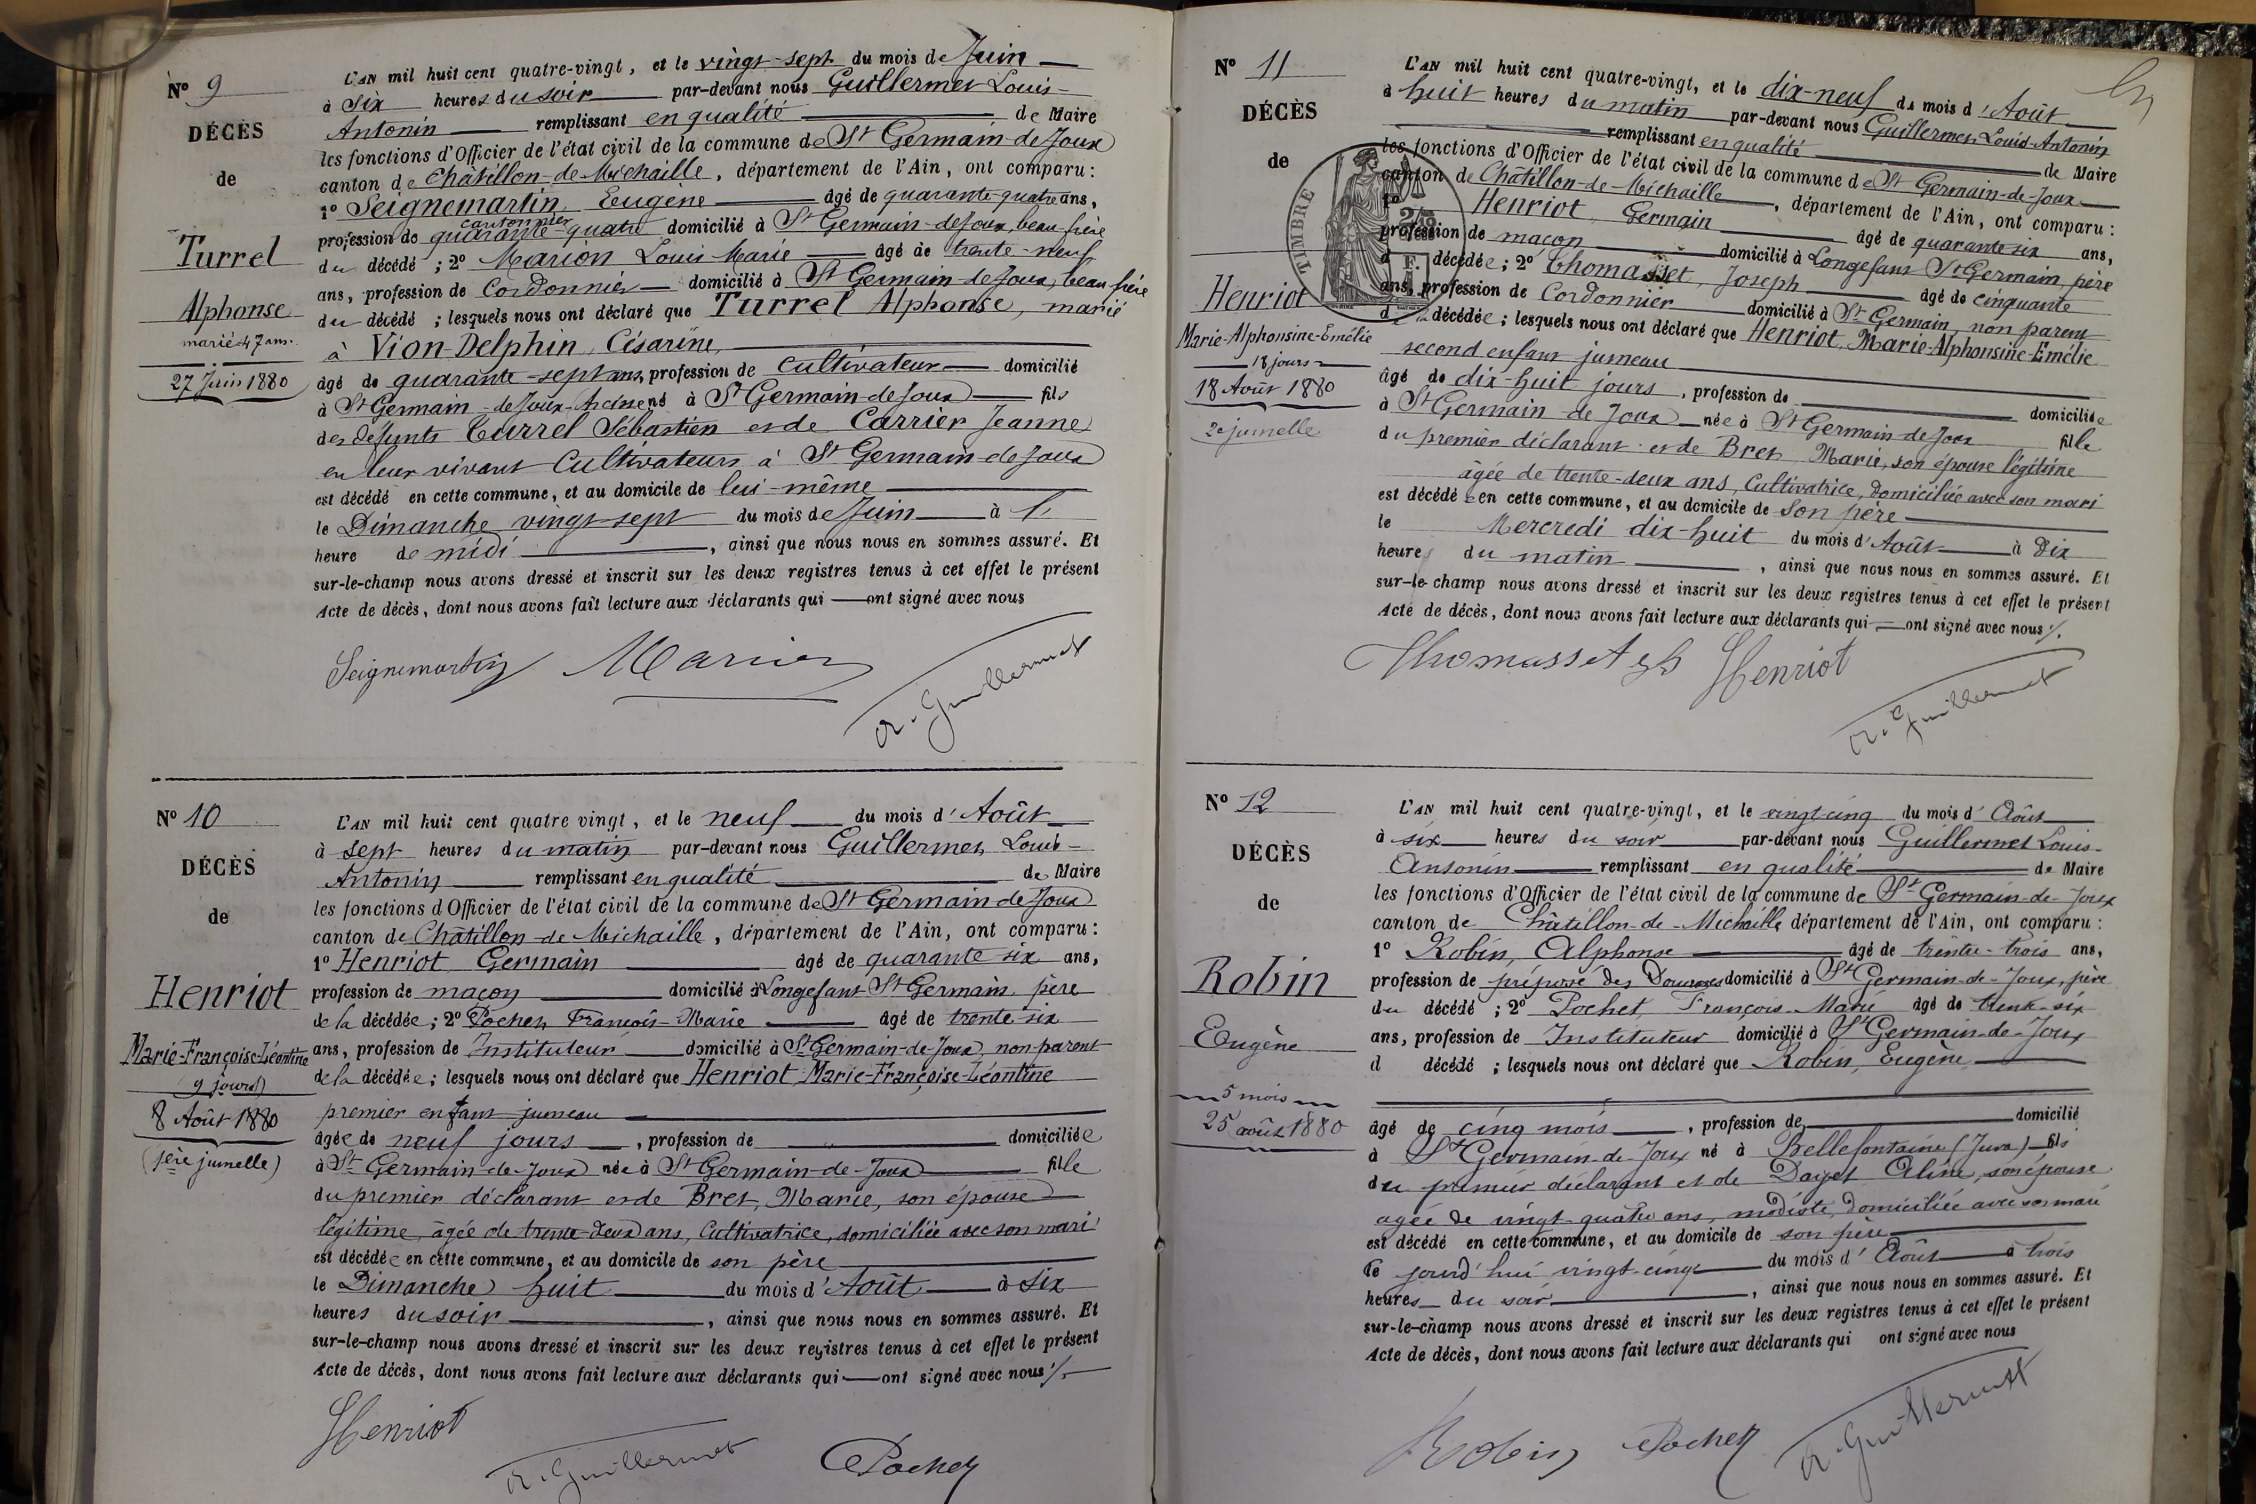 Nº 9
DÉCÈS
de
Turrel
Alphonse
marié 47 ans.
27 Juin 1880
L'AN mil huit cent quatre-vingt, et le vingt-sept du mois de Juin
à Six heures du soir par-devant nous Guillermet Louis-
Antonin remplissant en qualité de Maire
les fonctions d'Officier de l'état civil de la commune de St Germain-de-Joux
canton de Châtillon-de-Michaille, département de l'Ain, ont comparu:
1º Seignemartin, Eugène âgé de quarante-quatre ans,
cantonnier
profession de quarante-quatre domicilié à St Germain-de-Joux, beau-frère
du décédé ; 2º Marion Louis Marie âgé de trente-neuf
ans, profession de Cordonnier domicilié à St Germain-de-Joux, beau frère
du décédé ; lesquels nous ont déclaré que Turrel Alphonse, marié
à Vion-Delphin, Césarine,
âgé de quarante-sept ans, profession de cultivateur domicilié
à St Germain-de-Joux né à St Germain-de-Joux fils
des défunts Turrel Sébastien et de Carrier Jeanne
en leur vivant Cultivateurs à St Germain-de-Joux
est décédé en cette commune, et au domicile de lui-même
le Dimanche vingt-sept du mois de Juin à 1,
heure de midi, ainsi que nous nous en sommes assuré. Et
sur-le-champ nous avons dressé et inscrit sur les deux registres tenus à cet effet le présent
Acte de décès, dont nous avons fait lecture aux déclarants qui ont signé avec nous
Seignemartin Marion
A. Guillermet
Nº 10
DÉCÈS
de
Henriot
Marie-Françoise-Léontine
(9 jours)
8 Août 1880
(1ère jumelle)
L'AN mil huit cent quatre vingt, et le neuf du mois d'Août
à sept heures du matin par-devant nous Guillermet Louis-
Antonin remplissant en qualité de Maire
les fonctions d'Officier de l'état civil de la commune de St Germain-de-Joux
canton de Châtillon-de-Michaille, département de l'Ain, ont comparu:
1º Henriot Germain âgé de quarante six ans,
profession de maçon domicilié à Longefant St Germain, père
de la décédée; 2º Pochet, François-Marie âgé de trente-six
ans, profession de Instituteur domicilié à St Germain-de-Joux, non-parent
de la décédée; lesquels nous ont déclaré que Henriot, Marie-Françoise-Léontine
premier enfant jumeau
âgée de neuf jours, profession de domiciliée
à St Germain-de-Joux née à St Germain-de-Joux fille
du premier déclarant et de Bret, Marie, son épouse
légitime, âgée de trente-deux ans, Cultivatrice, domiciliée avec son mari
est décédée en cette commune, et au domicile de son père
le Dimanche huit du mois d'Août à six
heures du soir, ainsi que nous nous en sommes assuré. Et
sur-le-champ nous avons dressé et inscrit sur les deux registres tenus à cet effet le présent
Acte de décès, dont nous avons fait lecture aux déclarants qui ont signé avec nous
Henriot
A. Guillermet Pochet
Nº 11
DÉCÈS
de
Henriot
Marie-Alphonsine-Emélie
18 jours
18 Août 1880
2e jumelle
TIMBRE
L'AN mil huit cent quatre-vingt, et le dix-neuf du mois d'Août
à huit heures du matin par-devant nous Guillermet Louis-Antonin
remplissant en qualité de Maire
les fonctions d'Officier de l'état civil de la commune de St Germain-de-Joux
canton de Châtillon-de-Michaille, département de l'Ain, ont comparu:
1º Henriot Germain âgé de quarante six ans,
profession de maçon domicilié à Longefant St Germain, père
d décédée; 2º Thomasset, Joseph âgé de cinquante
ans, profession de Cordonnier domicilié à St Germain, non parent
de la décédée; lesquels nous ont déclaré que Henriot, Marie-Alphonsine-Emélie
second enfant jumeau
âgé de dix-huit jours, profession de domiciliée
à St Germain-de-Joux née à St Germain-de-Joux fille
du premier déclarant et de Bret Marie, son épouse légitime
âgée de trente-deux ans, Cultivatrice, domiciliée avec son mari
est décédée en cette commune, et au domicile de son père
le Mercredi dix-huit du mois d'Août à Dix
heures du matin, ainsi que nous nous en sommes assuré. Et
sur-le-champ nous avons dressé et inscrit sur les deux registres tenus à cet effet le présent
Acte de décès, dont nous avons fait lecture aux déclarants qui ont signé avec nous
Thomasset Henriot
A. Guillermet
Nº 12
DÉCÈS
de
Robin
Eugène
5 mois
25 août 1880
L'AN mil huit cent quatre-vingt, et le vingt-cinq du mois d'Août
à six heures du soir par-devant nous Guillermet Louis-
Antonin remplissant en qualité de Maire
les fonctions d'Officier de l'état civil de la commune de St Germain-de-Joux
canton de Châtillon-de-Michaille, département de l'Ain, ont comparu:
1º Robin, Alphonse âgé de trente-trois ans,
profession de préposé des Douanes domicilié à St Germain-de-Joux, père
du décédé ; 2º Pochet, François-Marie âgé de trente-six
ans, profession de Instituteur domicilié à St Germain-de-Joux
d décédé ; lesquels nous ont déclaré que Robin, Eugène
âgé de cinq mois, profession de domicilié
à St Germain-de-Joux né à Bellefontaine (Jura) fils
du premier déclarant et de Dayet Aline, son épouse
agée de vingt-quatre ans, modiste, domiciliée avec son mari
est décédé en cette commune, et au domicile de son père
ce jourd'hui vingt-cinq du mois d'Août à trois
heures du soir, ainsi que nous nous en sommes assuré. Et
sur-le-champ nous avons dressé et inscrit sur les deux registres tenus à cet effet le présent
Acte de décès, dont nous avons fait lecture aux déclarants qui ont signé avec nous
Robin Pochet A. Guillermet